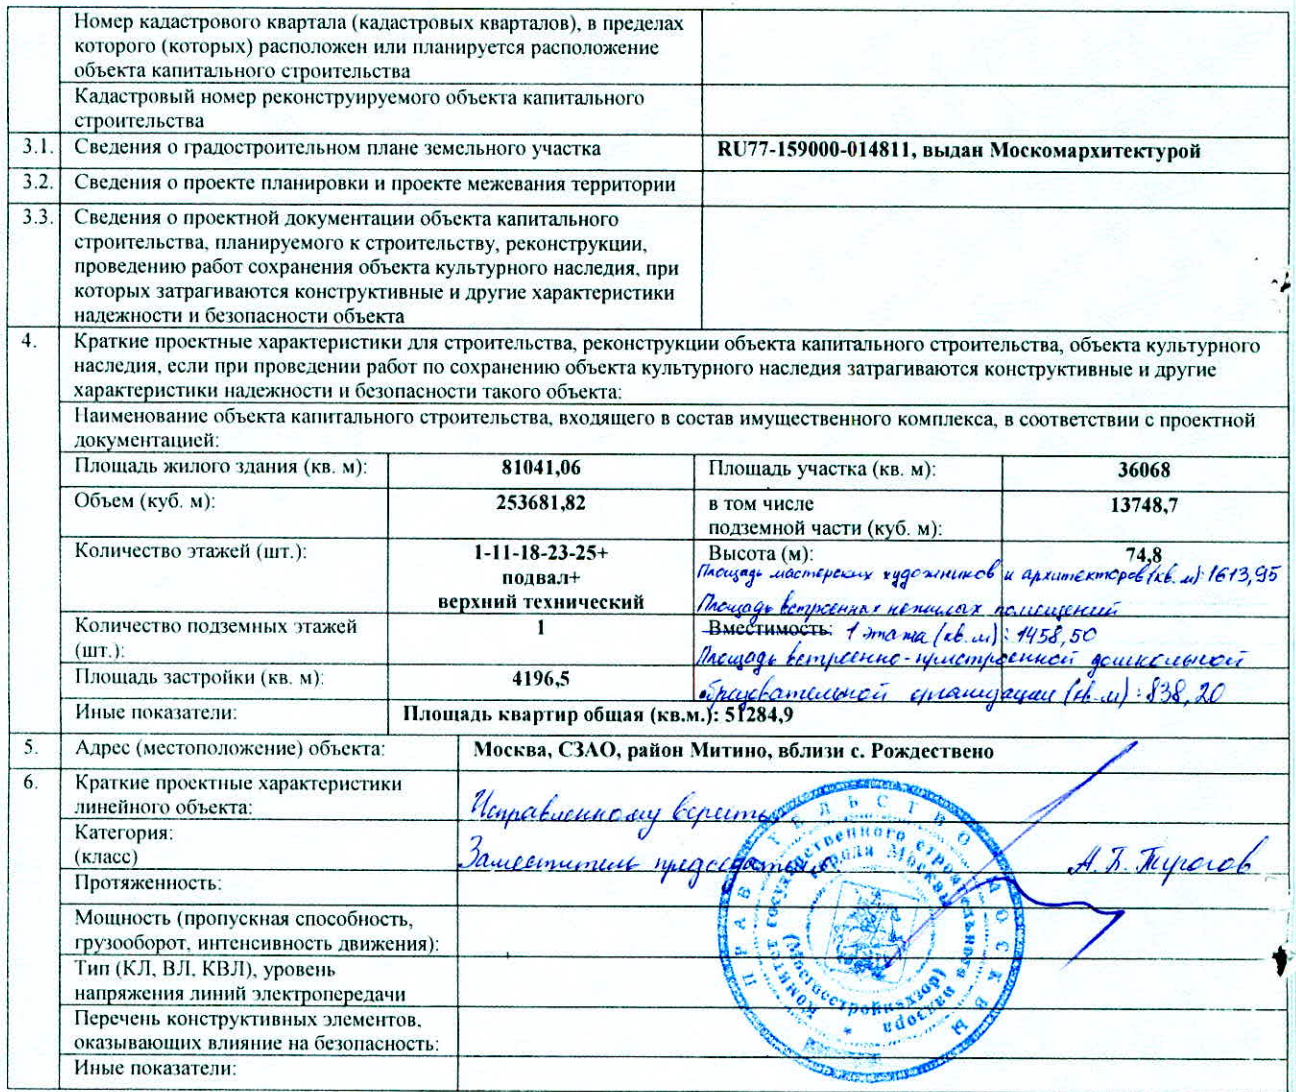 Номер кадастрового квартала (кадастровых кварталов), в пределах
которого (которых) расположен или планируется расположение
объекта капитального строительства
Кадастровый номер реконструируемого объекта капитального
строительства
3.1. Сведения о градостроительном плане земельного участка RU77-159000-014811, выдан Москомархитектурой
3.2. Сведения о проекте планировки и проекте межевания территории
3.3. Сведения о проектной документации объекта капитального
строительства, планируемого к строительству, реконструкции,
проведению работ сохранения объекта культурного наследия, при
которых затрагиваются конструктивные и другие характеристики
надежности и безопасности объекта
4. Краткие проектные характеристики для строительства, реконструкции объекта капитального строительства, объекта культурного
наследия, если при проведении работ по сохранению объекта культурного наследия затрагиваются конструктивные и другие
характеристики надежности и безопасности такого объекта:
Наименование объекта капитального строительства, входящего в состав имущественного комплекса, в соответствии с проектной
документацией:
Площадь жилого здания (кв. м): 81041,06 Площадь участка (кв. м): 36068
Объем (куб. м): 253681,82 в том числе
подземной части (куб. м): 13748,7
Количество этажей (шт.): 1-11-18-23-25+
подвал+
верхний технический
Высота (м): 74,8
Площадь мастерских художников и архитекторов (кв. м): 1613,95
Площадь встроенных нежилых помещений
Количество подземных этажей
(шт.): 1
Вместимость: 1 этажа (кв. м): 1458,50
Площадь встроенно-пристроенной дошкольной
образовательной организации (кв. м): 838,20
Площадь застройки (кв. м): 4196,5
Иные показатели: Площадь квартир общая (кв.м.): 51284,9
5. Адрес (местоположение) объекта: Москва, СЗАО, район Митино, вблизи с. Рождествено
6. Краткие проектные характеристики
линейного объекта:
Исправленному верить
Категория:
(класс)
Заместитель председателя А.Б. Пирогов
Протяженность:
Мощность (пропускная способность,
грузооборот, интенсивность движения):
Тип (КЛ, ВЛ, КВЛ), уровень
напряжения линий электропередачи
Перечень конструктивных элементов,
оказывающих влияние на безопасность:
Иные показатели:
ПРАВИТЕЛЬСТВО МОСКВЫ
Комитет государственного строительного надзора
города Москвы
(Мосгосстройнадзор)